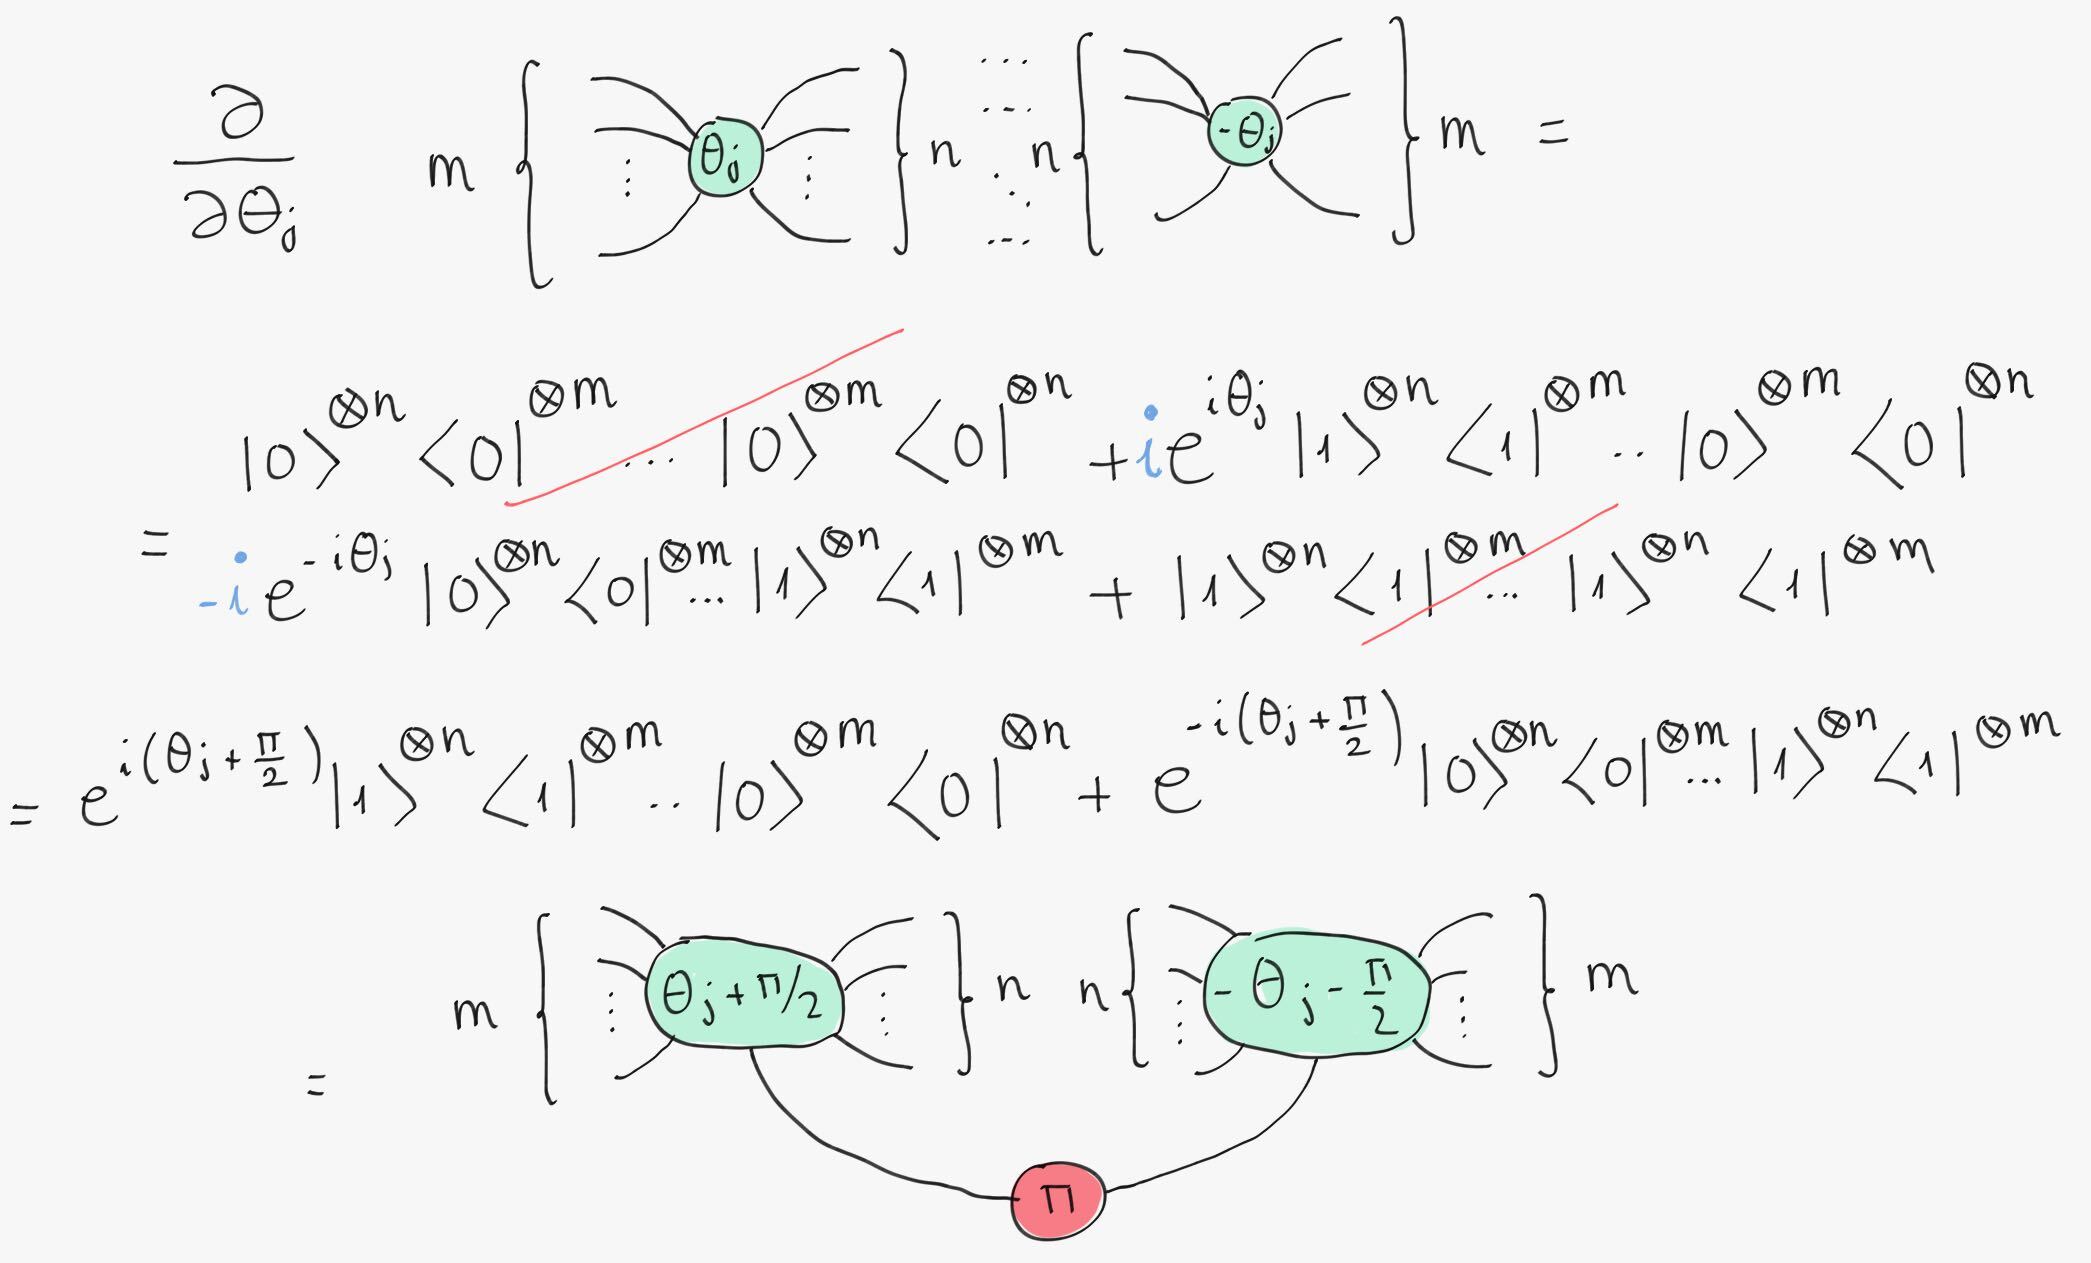 ∂/∂θj m { θj } n ... n { -θj } m =
|0⟩^⊗n ⟨0|^⊗m ... |0⟩^⊗m ⟨0|^⊗n + i e^{iθj} |1⟩^⊗n ⟨1|^⊗m .. |0⟩^⊗m ⟨0|^⊗n
= -i e^{-iθj} |0⟩^⊗n ⟨0|^⊗m ... |1⟩^⊗n ⟨1|^⊗m + |1⟩^⊗n ⟨1|^⊗m ... |1⟩^⊗n ⟨1|^⊗m
= e^{i(θj + π/2)} |1⟩^⊗n ⟨1|^⊗m .. |0⟩^⊗m ⟨0|^⊗n + e^{-i(θj + π/2)} |0⟩^⊗n ⟨0|^⊗m ... |1⟩^⊗n ⟨1|^⊗m
= m { θj + π/2 } n n { -θj - π/2 } m
π